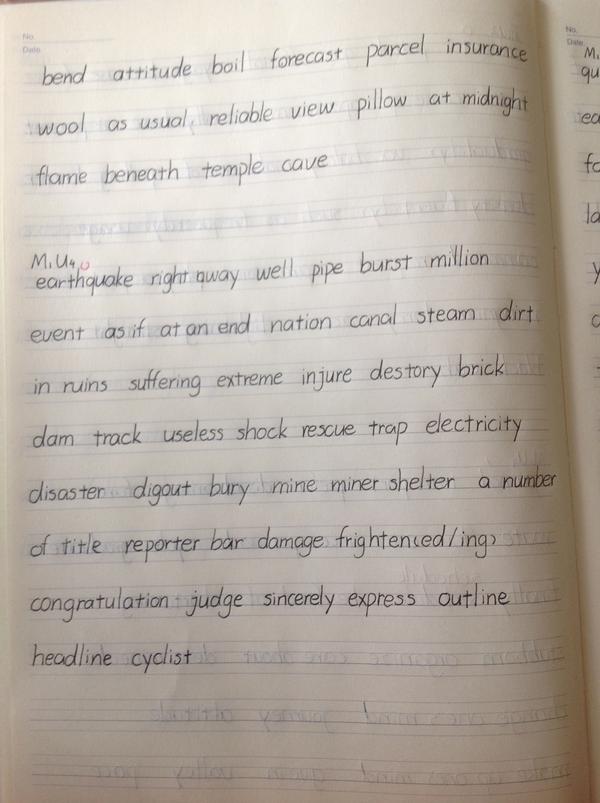 No.
Date
bend attitude boil forecast parcel insurance
wool as usual reliable view pillow at midnight
flame beneath temple cave
M1U4
earthquake right away well pipe burst million
event as if at an end nation canal steam dirt
in ruins suffering extreme injure destory brick
dam track useless shock rescue trap electricity
disaster digout bury mine miner shelter a number
of title reporter bar damage frighten(ed/ing)
congratulation judge sincerely express outline
headline cyclist
No.
Date